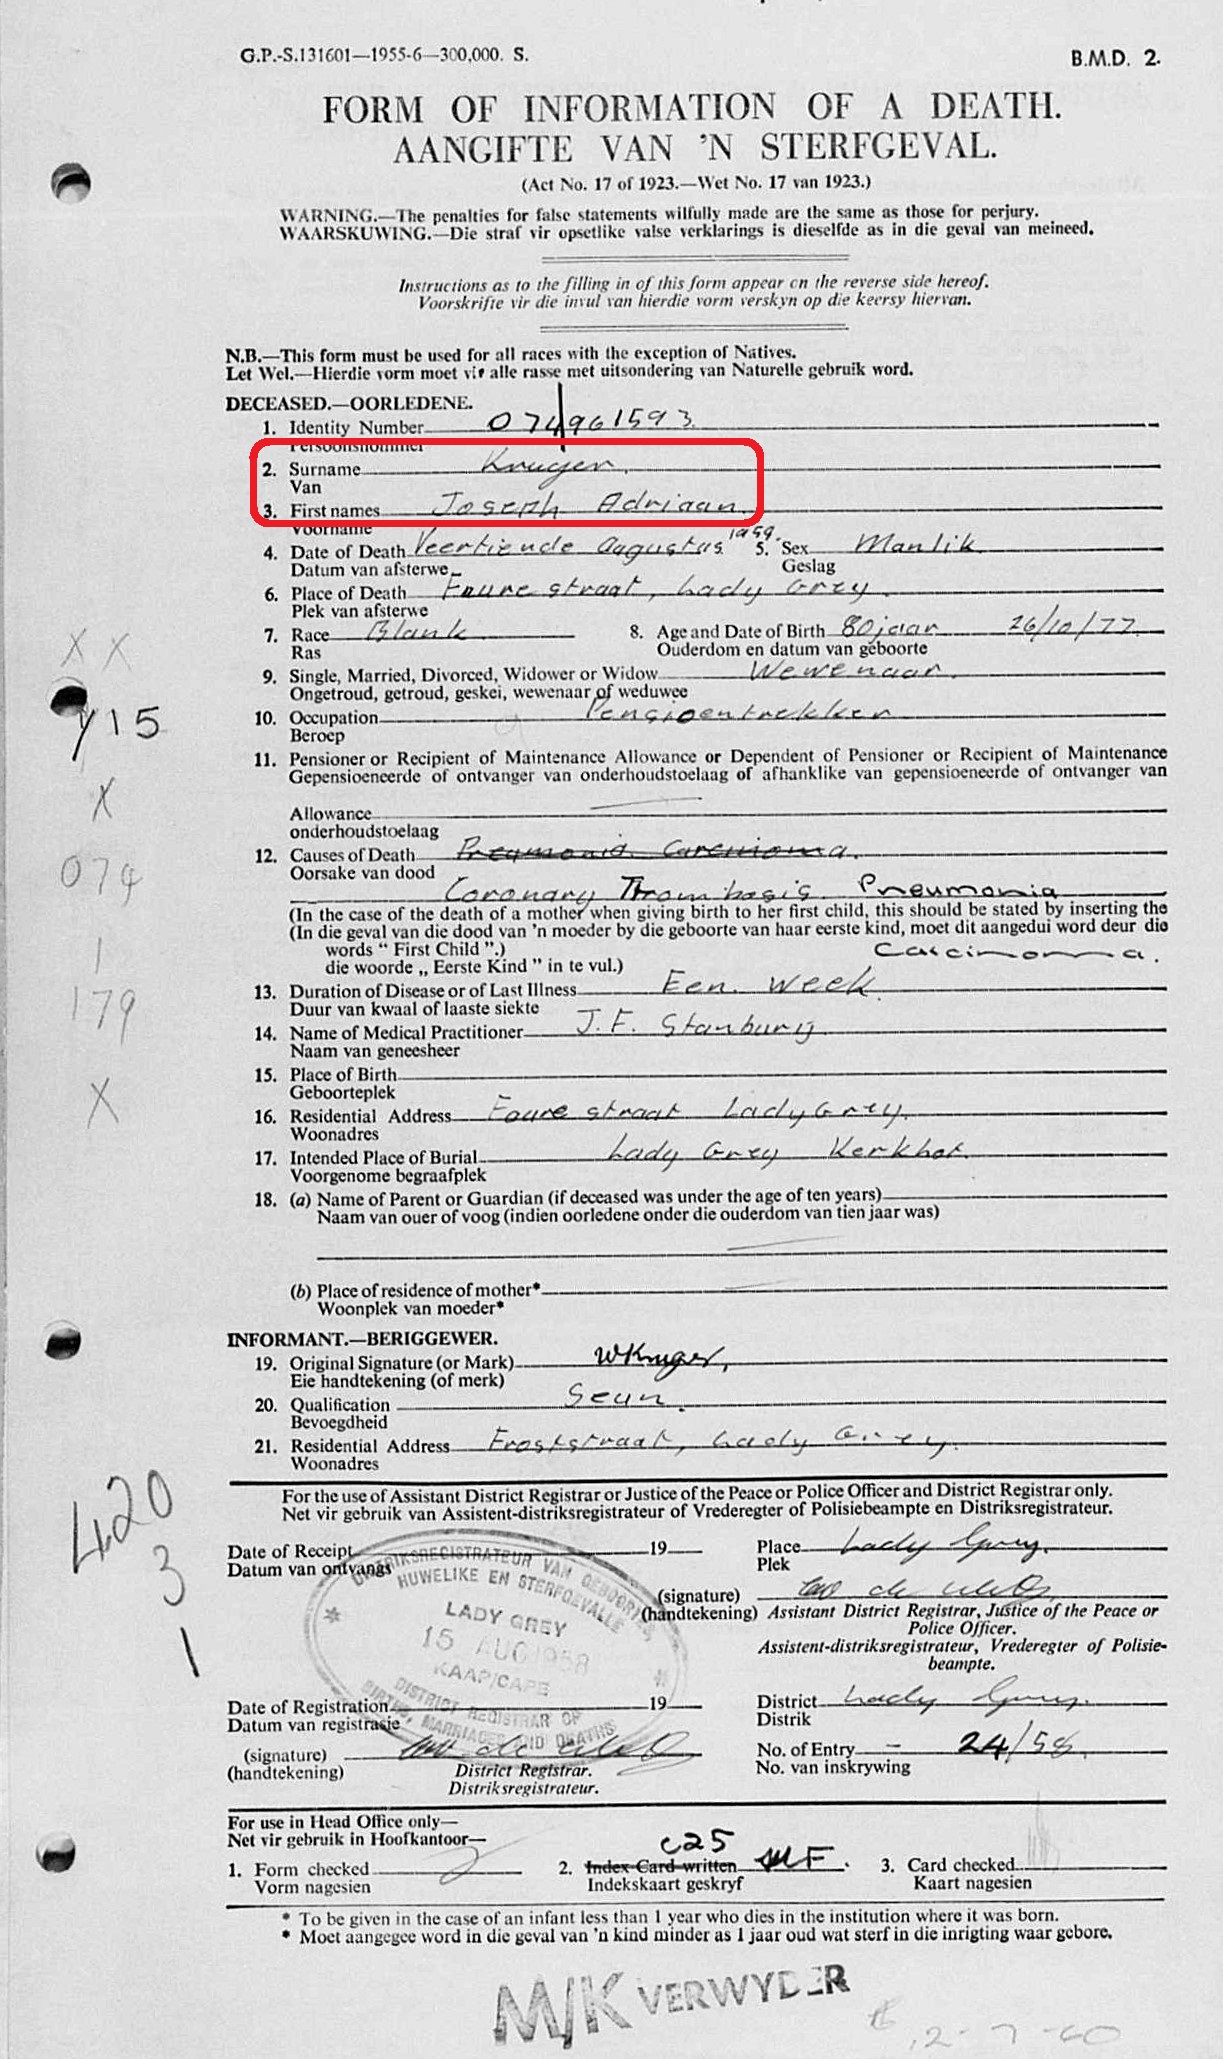 G.P.-S.131601—1955-6—300,000. S.
B.M.D. 2.
FORM OF INFORMATION OF A DEATH.
AANGIFTE VAN 'N STERFGEVAL.
(Act No. 17 of 1923.—Wet No. 17 van 1923.)
WARNING.—The penalties for false statements wilfully made are the same as those for perjury.
WAARSKUWING.—Die straf vir opsetlike valse verklarings is dieselfde as in die geval van meineed.
Instructions as to the filling in of this form appear on the reverse side hereof.
Voorskrifte vir die invul van hierdie vorm verskyn op die keersy hiervan.
N.B.—This form must be used for all races with the exception of Natives.
Let Wel.—Hierdie vorm moet vir alle rasse met uitsondering van Naturelle gebruik word.
DECEASED.—OORLEDENE.
1. Identity Number 074961593
Persoonsnommer
2. Surname Kruger.
Van
3. First names Joseph Adriaan.
Voorname
4. Date of Death Veertiende Augustus 5. Sex Manlik
Datum van afsterwe Geslag
6. Place of Death Faure straat, Lady Grey.
Plek van afsterwe
7. Race Blank 8. Age and Date of Birth 80 jaar 26/10/77.
Ras Ouderdom en datum van geboorte
9. Single, Married, Divorced, Widower or Widow Wewenaar.
Ongetroud, getroud, geskei, wewenaar of weduwee
10. Occupation Pensioentrekker
Beroep
11. Pensioner or Recipient of Maintenance Allowance or Dependent of Pensioner or Recipient of Maintenance
Gepensioeneerde of ontvanger van onderhoudstoelaag of afhanklike van gepensioeneerde of ontvanger van
Allowance
onderhoudstoelaag
12. Causes of Death Preumonia Carcinoma.
Oorsake van dood
Coronary Thrombosis Pneumonia
(In the case of the death of a mother when giving birth to her first child, this should be stated by inserting the
(In die geval van die dood van 'n moeder by die geboorte van haar eerste kind, moet dit aangedui word deur die
words " First Child ".) Carcinoma.
die woorde „ Eerste Kind " in te vul.)
13. Duration of Disease or of Last Illness Een week
Duur van kwaal of laaste siekte
14. Name of Medical Practitioner J.F. Stanbury
Naam van geneesheer
15. Place of Birth
Geboorteplek
16. Residential Address Faure straat Lady Grey.
Woonadres
17. Intended Place of Burial Lady Grey Kerkhof.
Voorgenome begraafplek
18. (a) Name of Parent or Guardian (if deceased was under the age of ten years)
Naam van ouer of voog (indien oorledene onder die ouderdom van tien jaar was)
(b) Place of residence of mother*
Woonplek van moeder*
INFORMANT.—BERIGGEWER.
19. Original Signature (or Mark) WKruger,
Eie handtekening (of merk)
20. Qualification Seun.
Bevoegdheid
21. Residential Address Froststraat, Lady Grey.
Woonadres
For the use of Assistant District Registrar or Justice of the Peace or Police Officer and District Registrar only.
Net vir gebruik van Assistent-distriksregistrateur of Vrederegter of Polisiebeampte en Distriksregistrateur.
Date of Receipt 19 Place Lady Grey.
Datum van ontvangs Plek
(signature)
(handtekening) Assistant District Registrar, Justice of the Peace or
Police Officer.
Assistent-distriksregistrateur, Vrederegter of Polisie-
beampte.
DISTRIKSREGISTRATEUR VAN GEBOORTES,
HUWELIKE EN STERFGEVALLE
LADY GREY
15 AUG 1958
KAAP/CAPE
DISTRICT REGISTRAR OF
BIRTHS, MARRIAGES AND DEATHS
Date of Registration 19 District Lady Grey.
Datum van registrasie Distrik
(signature) No. of Entry — 24/58.
(handtekening) District Registrar. No. van inskrywing
Distriksregistrateur.
For use in Head Office only—
Net vir gebruik in Hoofkantoor—
C25
1. Form checked 2. Index Card written MF. 3. Card checked
Vorm nagesien Indekskaart geskryf Kaart nagesien
* To be given in the case of an infant less than 1 year who dies in the institution where it was born.
* Moet aangegee word in die geval van 'n kind minder as 1 jaar oud wat sterf in die inrigting waar gebore.
M/K VERWYDER
X X
Y15
X
074
1
179
X
420
3
1